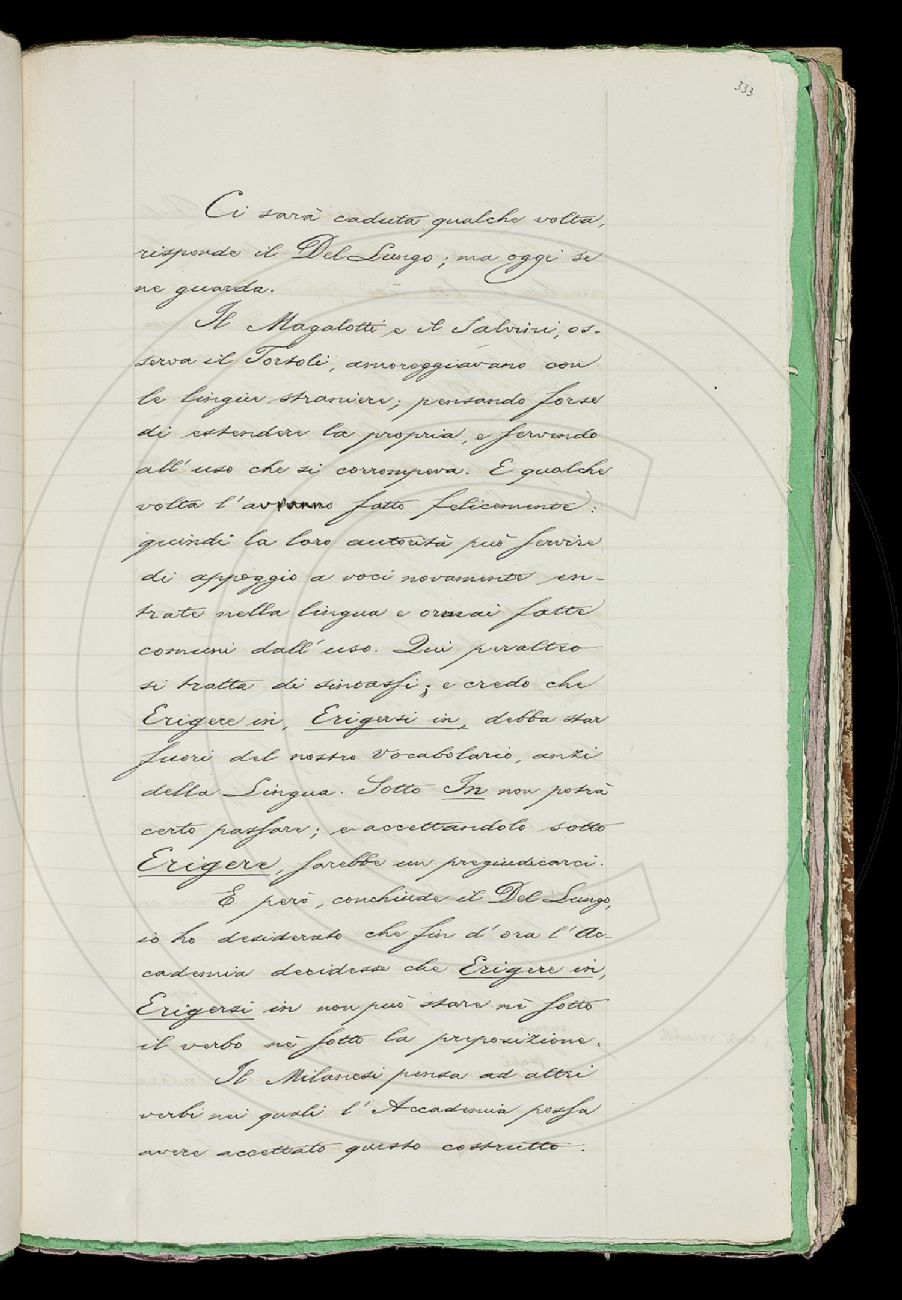 333
Ci sarà caduta qualche volta,
risponde il Del Lungo; ma oggi se
ne guarda.
Il Magalotti e il Salvini, os-
serva il Tortoli, amoreggiavano con
le lingue straniere; pensando forse
di estendere la propria, e servendo
all'uso che si corrompeva. E qualche
volta l'avranno fatto felicemente:
quindi la loro autorità può servire
di appoggio a voci novamente en-
trate nella lingua e oramai fatte
comuni dall'uso. Qui peraltro
si tratta di sintassi; e credo che
Erigere in, Erigersi in, debba star
fuori del nostro Vocabolario, anzi
della Lingua. Sotto In non potrà
certo passare; e accettandolo sotto
Erigere, sarebbe un pregiudicarci.
E però, conchiude il Del Lungo,
io ho desiderato che fin d'ora l'Ac-
cademia decidesse che Erigere in,
Erigersi in non può stare nè sotto
il verbo nè sotto la preposizione.
Il Milanesi pensa ad altri
verbi nei quali l'Accademia possa
avere accettato questo costrutto.